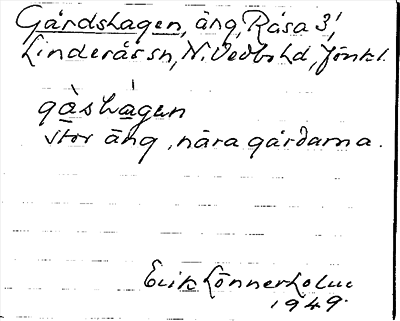 Gårdshagen, äng, Råsa 3¹,
Linderås sn, N. Vedbo hd, Jönk l.
gà̱shà̱gen
stor äng, nära gårdarna.
Erik Lönnerholm
1949.